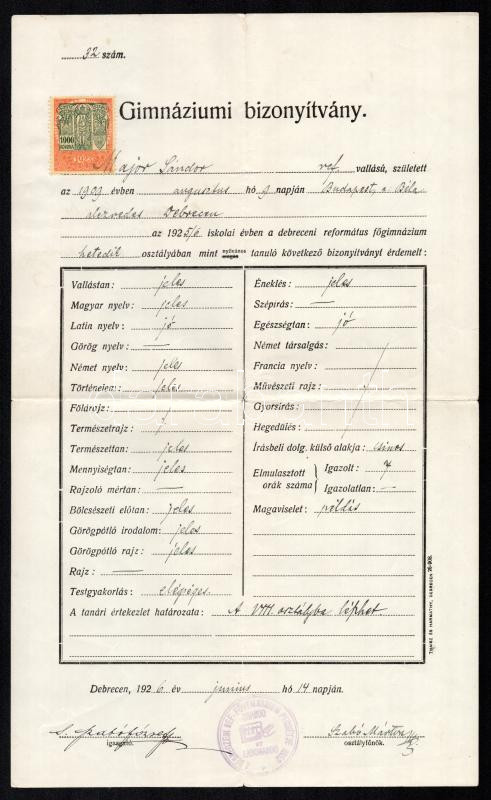 32 szám.
Gimnáziumi bizonyítvány.
1000
KORONA
Major Sándor ref. vallású, született
az 1909 évben augusztus hó 9 napján Budapest, a Béla
Debrecen
az 1925/6 iskolai évben a debreceni református főgimnázium
hetedik osztályában mint nyilvános magán tanuló következő bizonyítványt érdemelt:
Vallástan: jeles
Magyar nyelv: jeles
Latin nyelv: jó
Görög nyelv: —
Német nyelv: jeles
Történelem: jeles
Földrajz:
Természetrajz:
Természettan: jeles
Mennyiségtan: jeles
Rajzoló mértan: —
Bölcsészeti előtan: jeles
Görögpótló irodalom: jeles
Görögpótló rajz: jeles
Rajz: —
Testgyakorlás: elégséges
Éneklés: jeles
Szépírás: —
Egészségtan: jó
Német társalgás:
Francia nyelv:
Művészeti rajz:
Gyorsírás:
Hegedülés:
Írásbeli dolg. külső alakja: csinos
Elmulasztott órák száma
Igazolt: 7
Igazolatlan: —
Magaviselet: példás
A tanári értekezlet határozata: A VIII. osztályba léphet.
Debrecen, 1926 év junius hó 14 napján.
igazgató.
Szabó Márton
osztályfőnök.